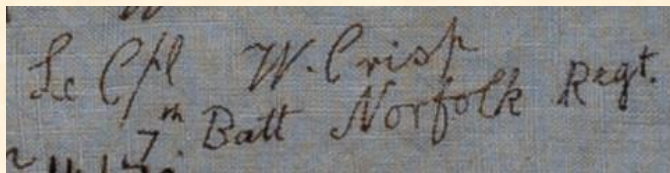 Lc Cpl W. Crisp
7th Batt Norfolk Regt.